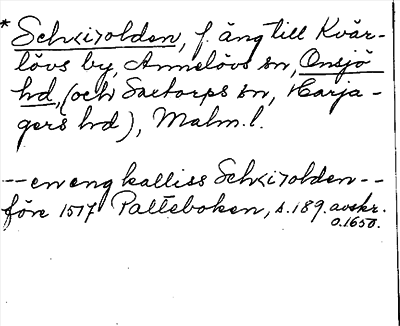 * Sch<i>olden, f. äng till Kvär-
lövs by, Annelövs sn, Onsjö
hd, (och Saxtorps sn, Harja-
gers hd), Malm.l.
-- en eng kalliss Sch<i>olden --
före 1517 Palteboken, s.189. avskr.
o.1650.